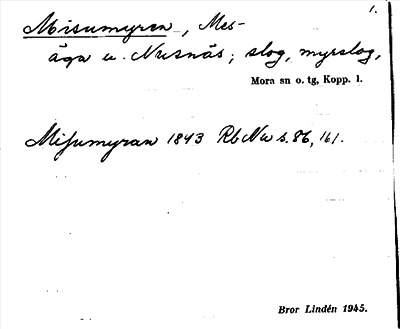 1.
Misumyren, Mes-
åga u. Nusnäs; slog, myrslog,
Mora sn o. tg, Kopp. l.
Misumyran 1843 Rb Nu s. 86, 161.
Bror Lindén 1945.